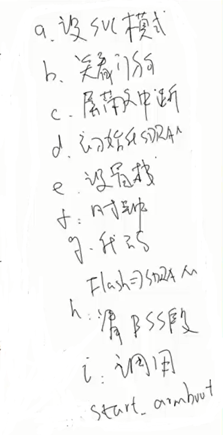 a. 设SVC模式
b. 关看门狗
c. 屏蔽中断
d. 初始化SDRAM
e. 设置栈
f. 时钟
g. 代码
Flash→SDRAM
h. 清BSS段
i. 调用
start_armboot